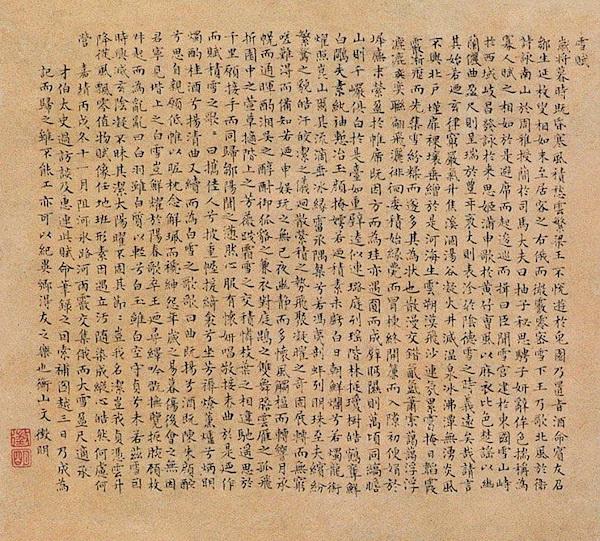 雪賦
歲將暮時既昏寒風積愁雲繁梁王不悅遊於兔園乃置旨酒命賓友召
鄒生延枚叟相如末至居客之右俄而微霰零密雪下王乃歌北風於衛
詩詠南山於周雅授簡於司馬大夫曰抽子秘思騁子妍辭侔色揣稱為
寡人賦之相如於是避席而起逡巡而揖曰臣聞雪宮建於東國雪山峙
於西域岐昌發詠於來思姬滿申歌於黃竹曹風以麻衣比色楚謠以幽
蘭儷曲盈尺則呈瑞於豐年袤丈則表沴於陰德雪之時義遠矣哉請言
其始若迺玄律窮嚴氣升焦溪涸湯谷凝火井滅溫泉冰沸潭無湧炎風
不興北戶墐扉裸壤垂繒於是河海生雲朔漠飛沙連氛累靄掩日韜霞
霰淅瀝而先集雪紛糅而遂多其為狀也散漫交錯氛氳蕭索藹藹浮浮
瀌瀌奕奕聯翩飛灑徘徊委積始緣甍而冒棟終開簾而入隙初便娟於
墀廡末縈盈於帷席既因方而為珪亦遇圓而成璧眄隰則萬頃同縞瞻
山則千巖俱白於是臺如重璧逵似連璐庭列瑤階林挺瓊樹皓鶴奪鮮
白鷴失素紈袖慙冶玉顏掩嫮若迺積素未虧白日朝鮮爛兮若燭龍銜
燿照崑山爾其流滴垂冰緣霤承隅粲兮若馮夷剖蚌列明珠至夫繽紛
繁騖之貌皓汗皦潔之儀迴散縈積之勢飛聚凝曜之奇固展轉而無窮
嗟難得而備知若迺申娛玩之無已夜幽靜而多懷風觸楹而轉響月承
幌而通暉酌湘吳之醇酎御狐貉之兼衣對庭鵾之雙舞瞻雲雁之孤飛
折園中之萱草摘階上之芳薇踐霜雪之交積憐枝葉之相違馳遙思於
千里願接手而同歸鄒陽聞之懣然心服有懷妍唱敬接末曲於是迺作
而賦積雪之歌歌曰攜佳人兮披重幄援綺衾兮坐芳褥燎薰爐兮炳明
燭酌桂酒兮揚清曲又續而為白雪之歌歌曰曲既揚兮酒既陳朱顏酡
兮思自親願低帷以昵枕念解珮而褫紳怨年歲之易暮傷後會之無因
君寧見階上之白雪豈鮮耀於陽春歌卒王迺尋繹吟翫撫覽扼腕顧枚
叔起而為亂亂曰白羽雖白質以輕兮白玉雖白空守貞兮未若茲雪因
時興滅玄陰凝不昧其潔太陽曜不固其節節豈我名潔豈我貞馮雲升
降從風飄零值物賦像任地班形素因遇立污隨染成縱心皓然何慮何
營 嘉靖丙戌冬十一月阻河水路河西霰交集俄而大雪盈尺適承
才伯太史過訪談及惠連此賦命筆錄之因索補圖越三日乃成為
記而歸之雖不能工亦可以紀異鄉得友之樂也衡山文徵明